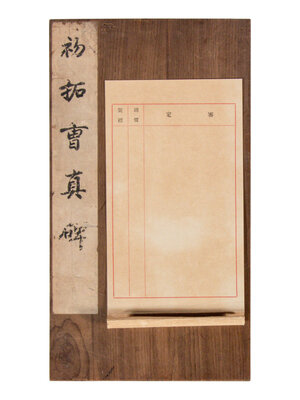 初拓曹真碑
審定